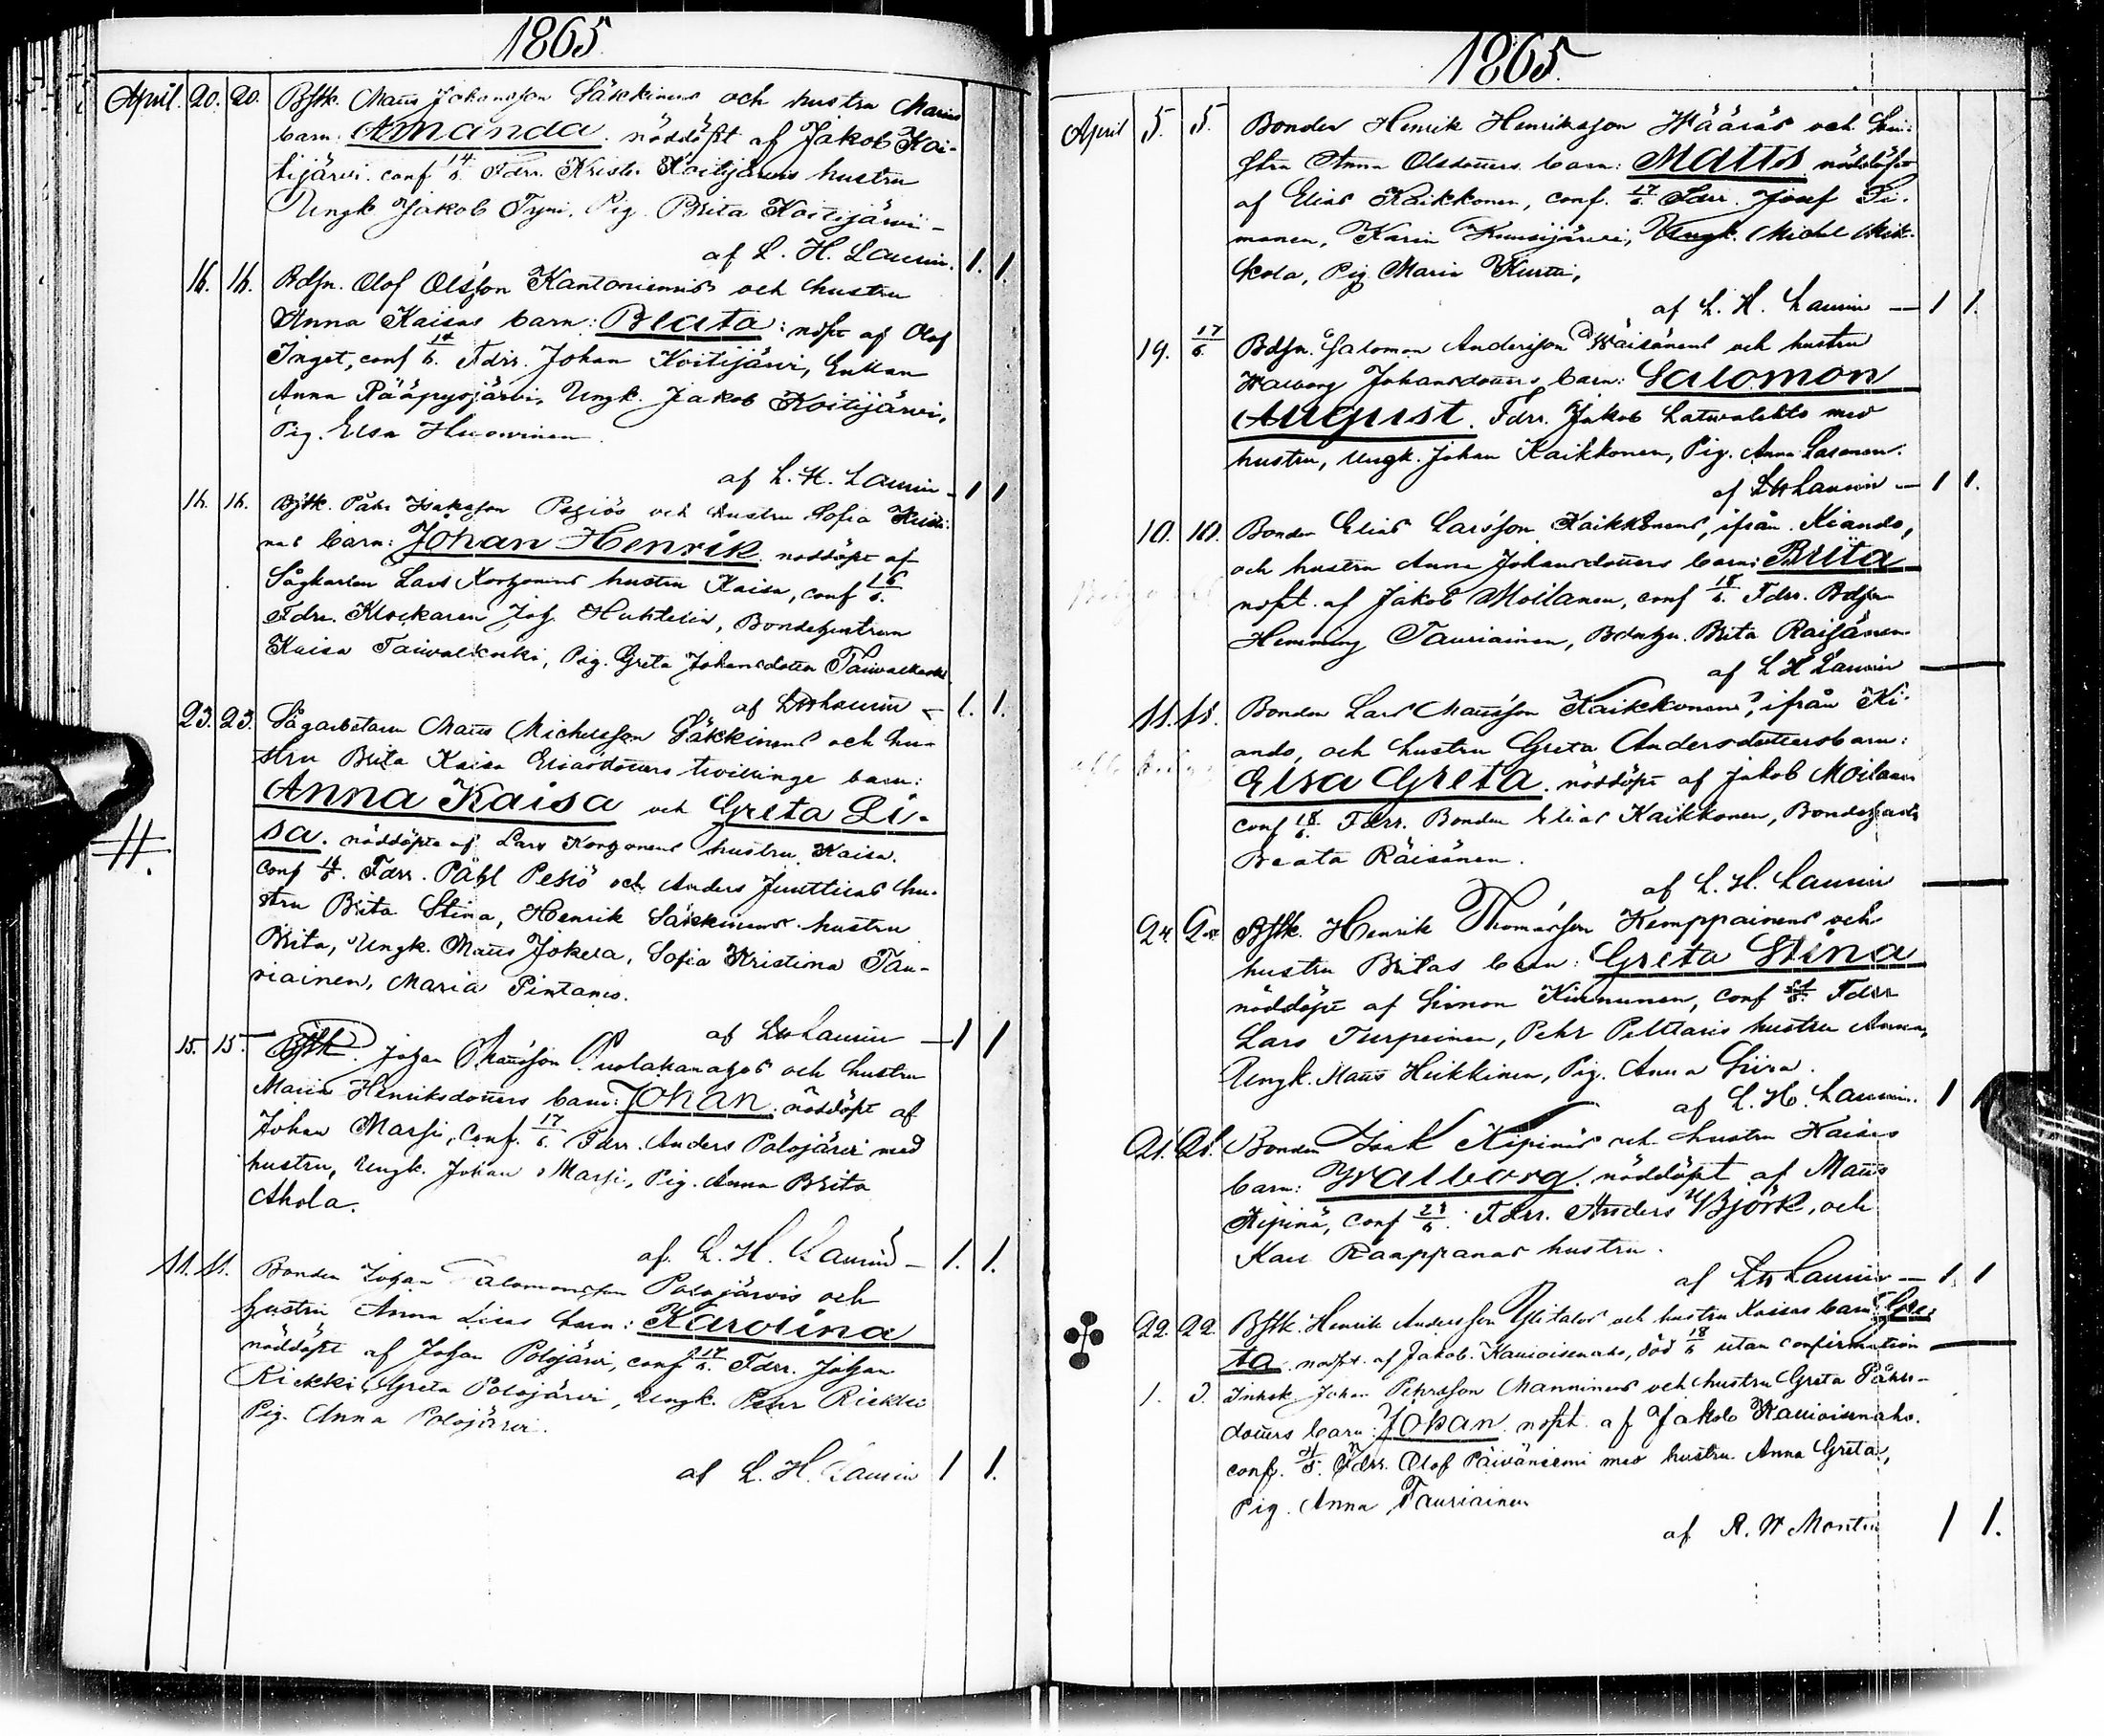 1865
April. 20. 20. Bstk. Matts Johansson Säkkinens och hustru Marias
barn: Amanda. nöddöpt af Jakob Koi-
tijärvi. conf 14/6. Fdrr. Krist. Koitijärvis hustru
Ungk Jakob Tyni. Pig. Brita Koitijärvi -
af L. H. Laurin. 1. 1.
16. 16. Bdsn. Olof Olsson Kantoniemis och hustru
Anna Kaisas barn: Beata: ndpt af Olof
Inget, conf 14/6. Fdrr. Johan Koitijärvi, Enkan
Anna Rääpysjärvi, Ungk. Jakob Koitijärvi,
Pig. Elsa Huovinen.
af L. H. Laurin - 1 1
16. 16. Bstk. Påhr Isaksson Pesiös och hustru Sofia
nas barn: Johan Henrik. noddöpt af
Sågkarlen Lars Korhonens hustru Kaisa, conf 16/6.
Fdrr. Klockaren Joh. Huktelin, Bondehustrun
Kaisa Taivalkoski, Pig. Greta Johansdotter Taivalkoski
af LHLaurin - 1. 1.
23. 23. Sågarbetaren Matts Michelsson Säkkinens och hu-
stru Brita Kaisa Eliasdotters tvillinge barn:
Anna Kaisa och Greta Li-
sa. nöddöpta af Lars Korhonens hustru Kaisa.
conf 14/6. Fdrr. Påhl Pesiö och Anders Junttilas hu-
stru Brita Stina, Henrik Säkkinens hustru
Brita, Ungk. Matts Jokela, Sofia Kristina Tau-
riainen, Maria Pintamo.
af LHLaurin - 1 1
15. 15. Bstk. Johan Mattsson Puolakanahos och hustru
Maria Henriksdotters barn: Johan. nöddöpt af
Johan Marsi, Conf. 17/6. Fdrr. Anders Polojärvi med
hustru, Ungk. Johan Marsi, Pig. Anna Brita
Ahola.
af. L. H. Laurin - 1. 1.
11. 11. Bonden Johan Salomonsson Polojärvis och
hustru Anna Lisas barn: Karolina
nöddöpt af Johan Polojärvi, conf 17/6. Fdrr. Johan
Riekki, Greta Polojärvi, Ungk. Pehr Riekki
Pig. Anna Polojärvi.
af L. H. Laurin 1 1.
1865.
April 5. 5. Bonden Henrik Henriksson Wääräs och hu-
stru Anna Olsdotters barn: Matts nöddöpt
af Elias Kaikkonen, conf. 17/6. Fdrr. Josef Ti-
monen, Karin Kuusijärvi, Ungk. Michel Mik-
kola, Pig Maria Kurtti,
af L. H. Laurin — 1 1.
19. 17/6. Bdsn. Salomon Andersson Wäisänens och hustru
Walborg Johansdotters barn: Salomon
August. Fdrr. Jakob Latvalehto med
hustru, Ungk. Johan Kaikkonen, Pig. Anna Lasonen.
af LHLaurin — 1 1.
10. 10. Bonden Elias Larsson Kaikkonens, ifrån Kiando,
och hustru Anna Johansdotters barn: Brita
ndpt. af Jakob Moilanen, conf 18/6. Fdrr. Bdsn
Hemming Tauriainen, Bdehu. Brita Raisänen
af L H Laurin
11. 11. Bonden Lars Mattsson Kaikkonens, ifrån Ki-
ando, och hustru Greta Andersdotters barn:
Elsa Greta. nöddöpt af Jakob Moilanen
conf 18/6. Fdrr. Bonden Elias Kaikkonen, Bondehustr
Beata Räisänen.
af L. H. Laurin
24. 24. Bstk. Henrik Thomasson Kemppainens och
hustru Britas barn: Greta Stina
nöddöpt af Simon Kinnunen, conf Fdrr
Lars Turpeinen, Pehr Pelttaris hustru Anna,
Ungk. Matts Heikkinen, Pig. Anna Siira.
af L. H. Laurin. 1 1
21. 21. Bonden Isak Kipinäs och hustru Kaisas
barn: Walborg. nöddöpt af Matts
Kipinä, conf 21/6. Fdrr. Anders Björk, och
Karl Raappanas hustru.
af LHLaurin — 1. 1
22. 22. Bstk. Henrik Andersson Ylitalos och hustru Kaisas barn: Gre-
ta. ndpt. af Jakob Kauvoisenaho, död 18/6 utan confirmation
1. 3. Inhsk Johan Pehrsson Manninens och hustru Greta Påhrs-
dotters barn: Johan. ndpt. af Jakob Kauvoisenaho.
conf. 4/5. Fdrr. Olof Päiväniemi med hustru Anna Greta,
Pig. Anna Tauriainen
af A. W Montin 1 1.